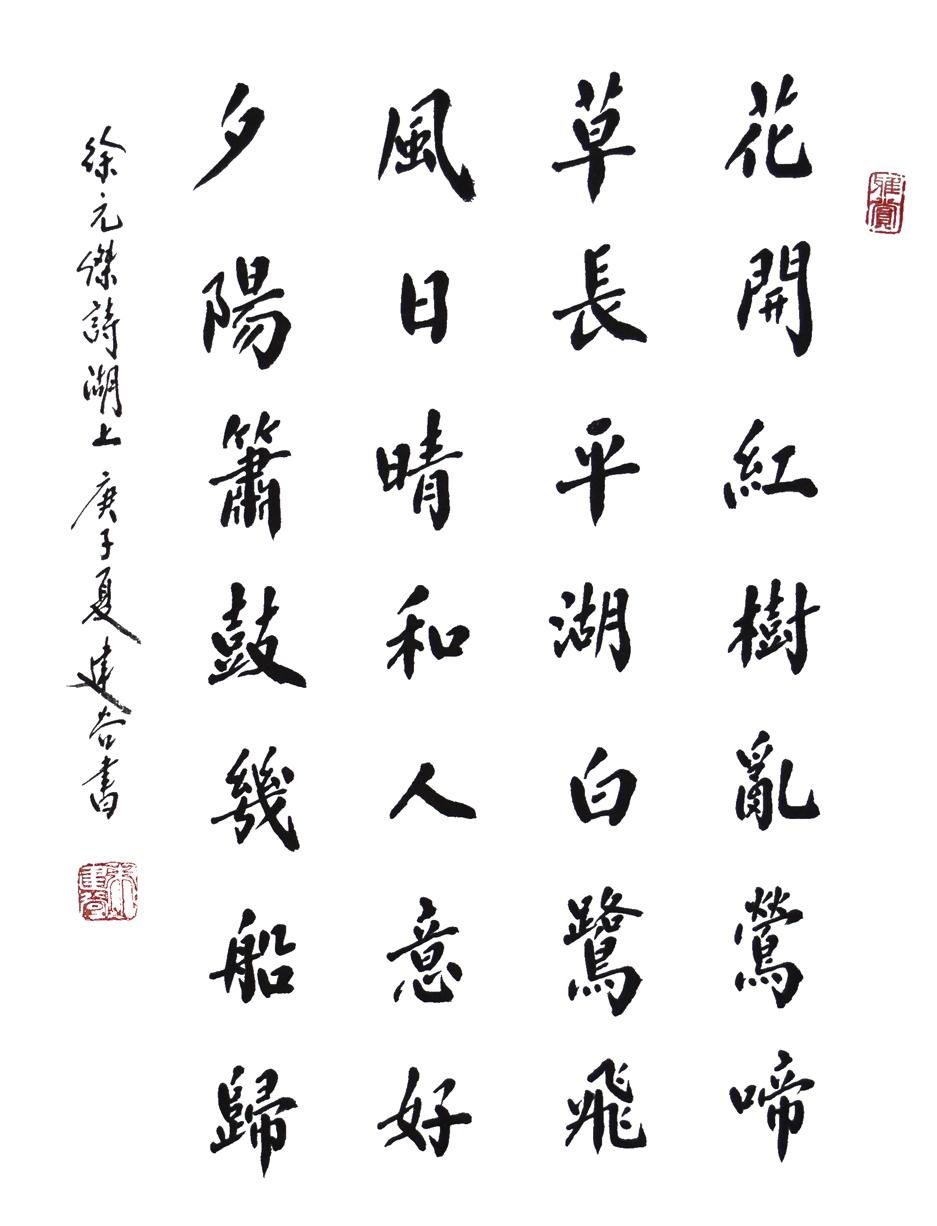 雅賞
花開紅樹亂鶯啼
草長平湖白鷺飛
風日晴和人意好
夕陽簫鼓幾船歸
徐元傑詩湖上 庚子夏建谷書